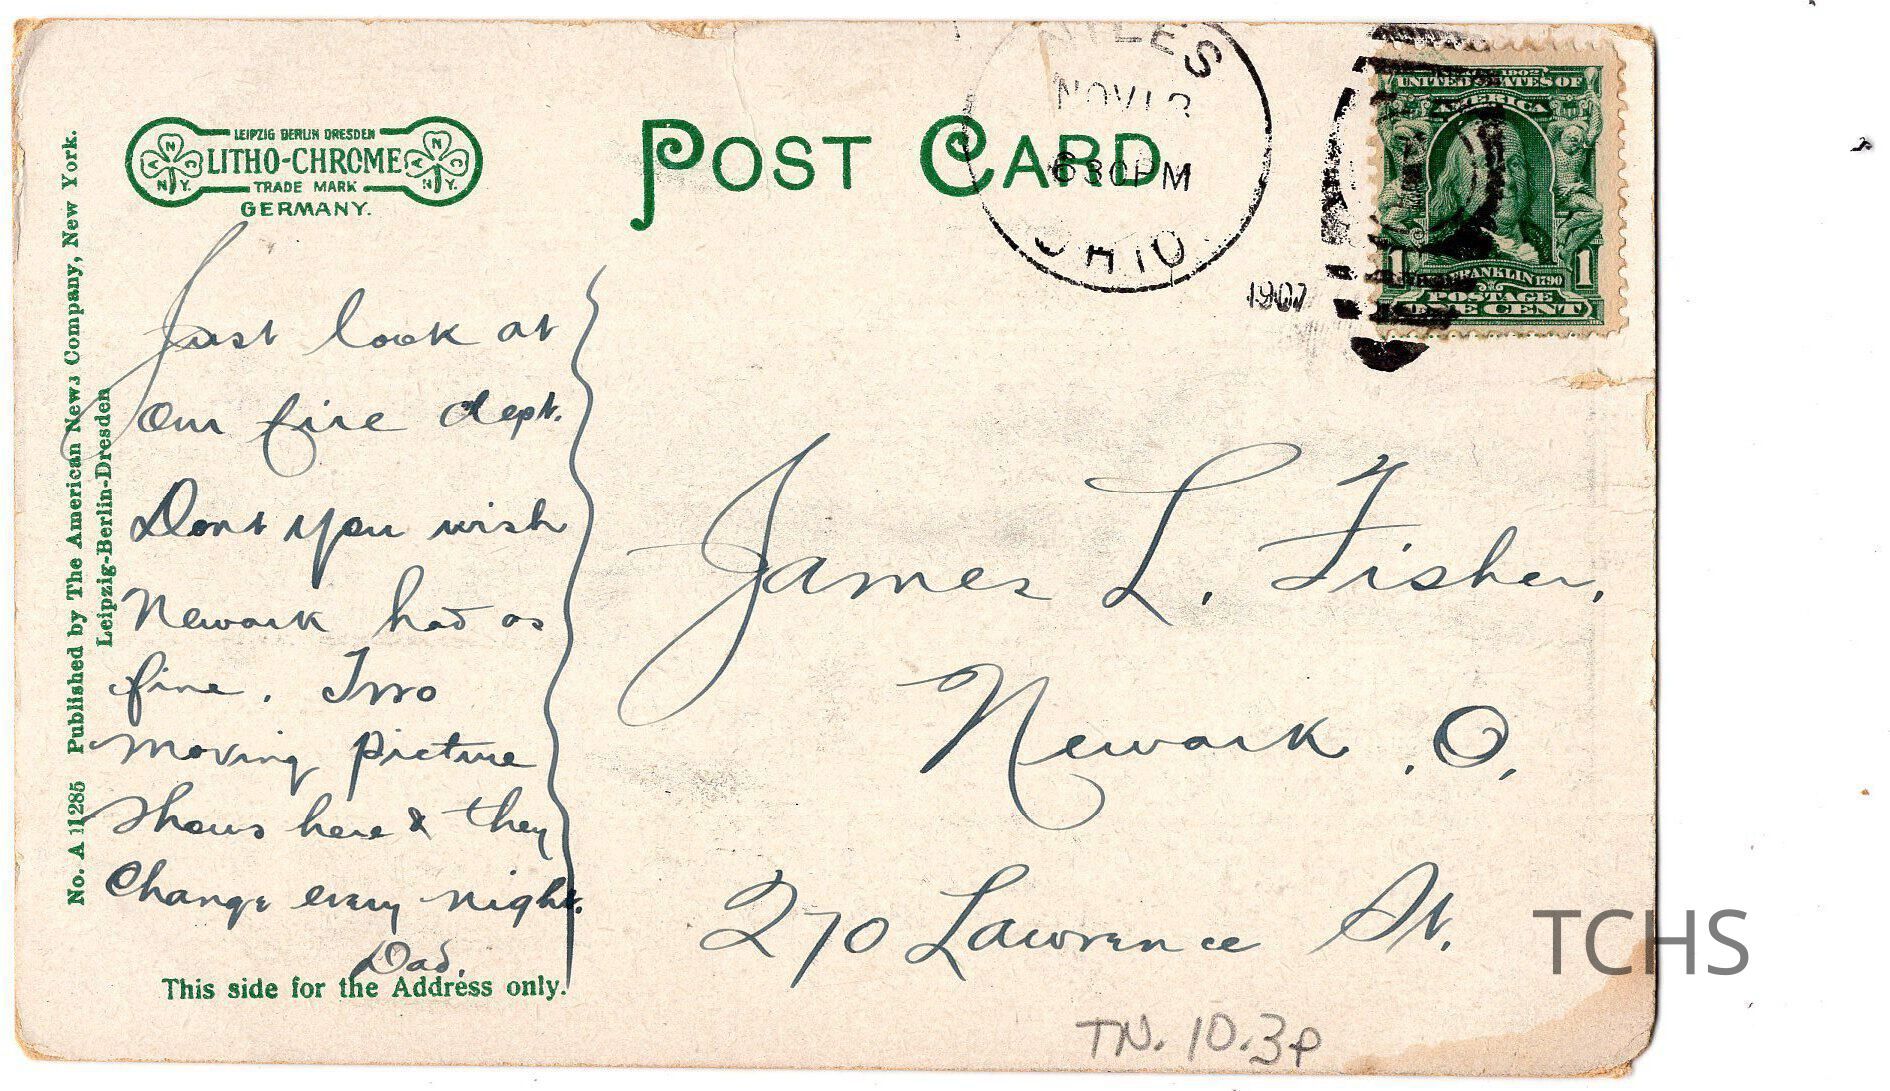 LEIPZIG BERLIN DRESDEN
N A C N.Y.
LITHO-CHROME
TRADE MARK
GERMANY.
POST CARD
NILES
NOV 1
630PM
OHIO
1907
SERIES 1902
UNITED STATES OF
AMERICA
1 FRANKLIN 1790 1
POSTAGE
ONE CENT
No. A 11285 Published by The American News Company, New York.
Leipzig-Berlin-Dresden
Just look at
Our fire dept.
Dont you wish
Newark had as
fine. Two
moving picture
shows here & they
change every night.
Dad.
This side for the Address only.
James L. Fisher,
Newark, O,
270 Lawrence St.
TCHS
TN. 10.3P